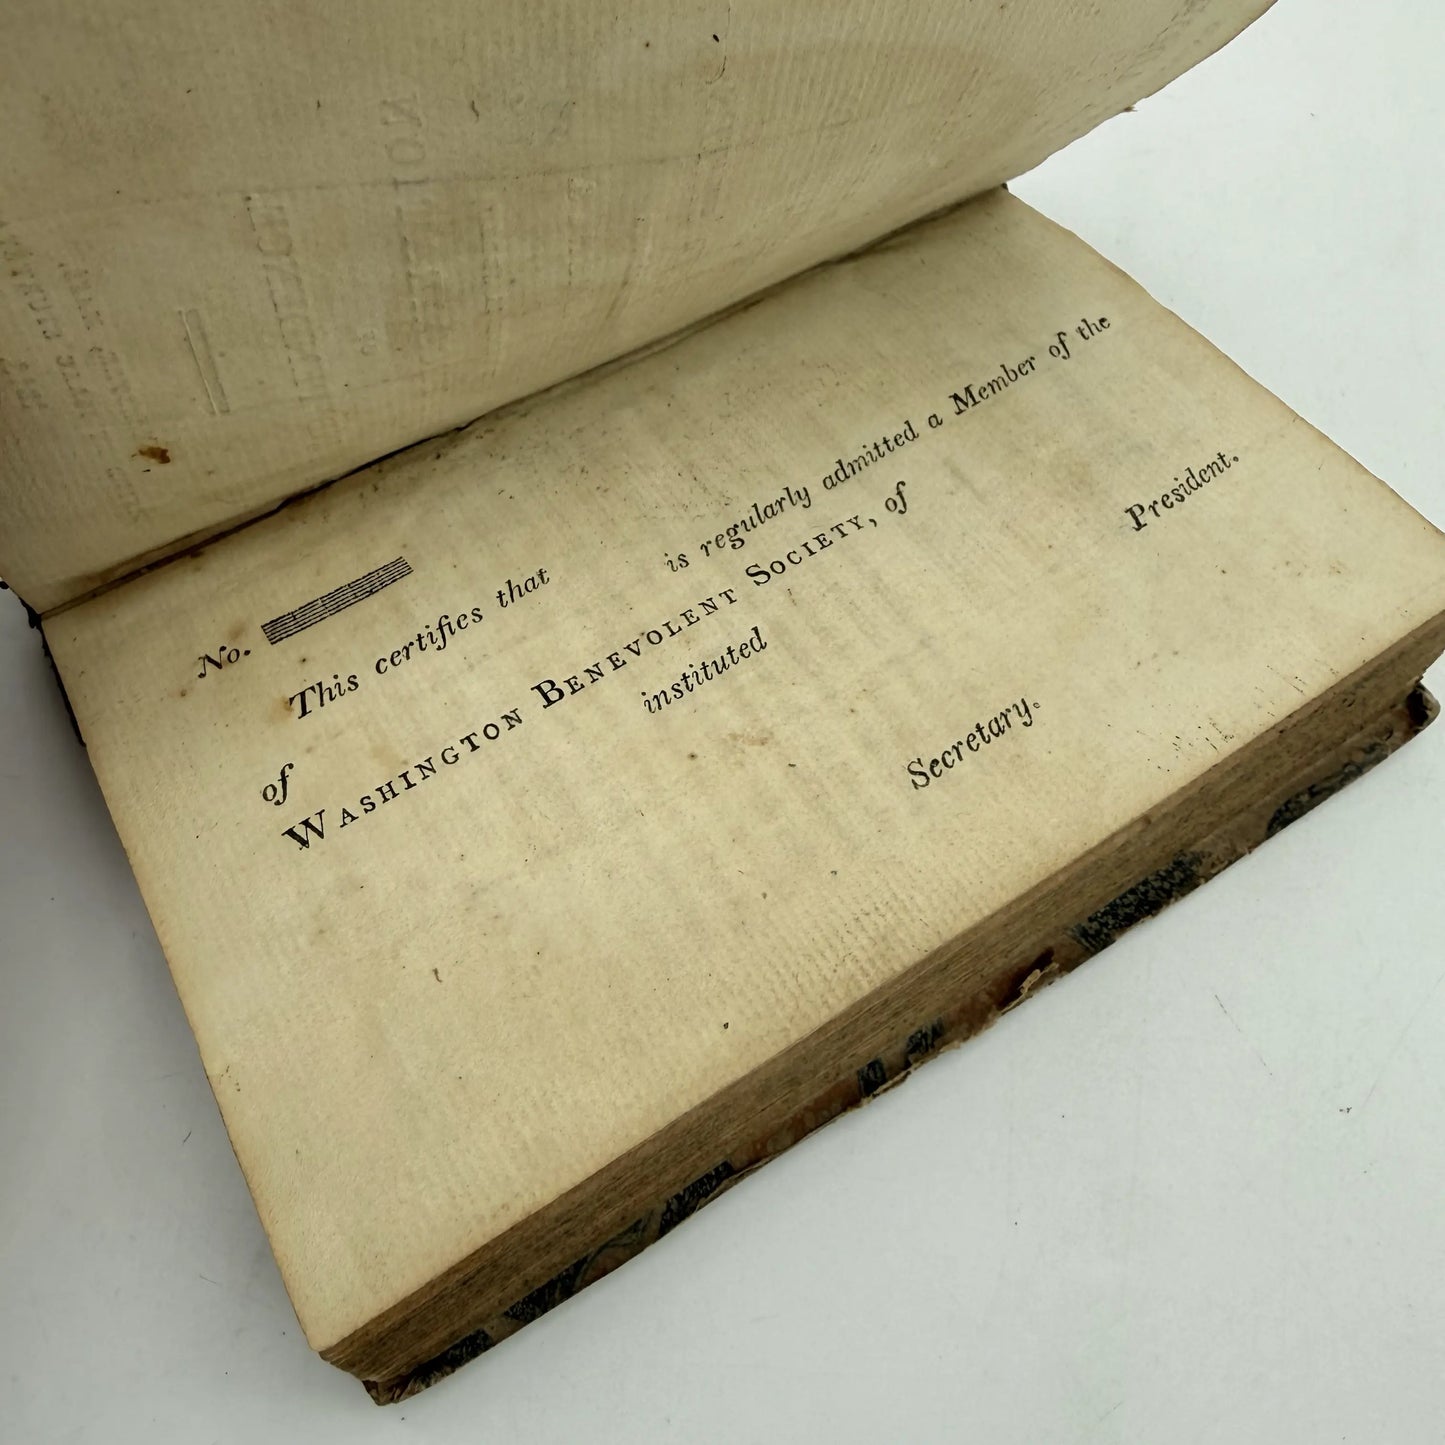 No.
This certifies that is regularly admitted a Member of the
of
WASHINGTON BENEVOLENT SOCIETY, of
instituted
President.
Secretary.